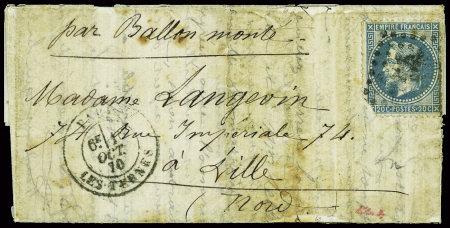 par Ballon monté
EMPIRE FRANÇAIS
20C POSTES 20C
Madame Langevin
74 Rue Impériale 74.
à Lille
(Nord)
OCT.
70
LES TERNES